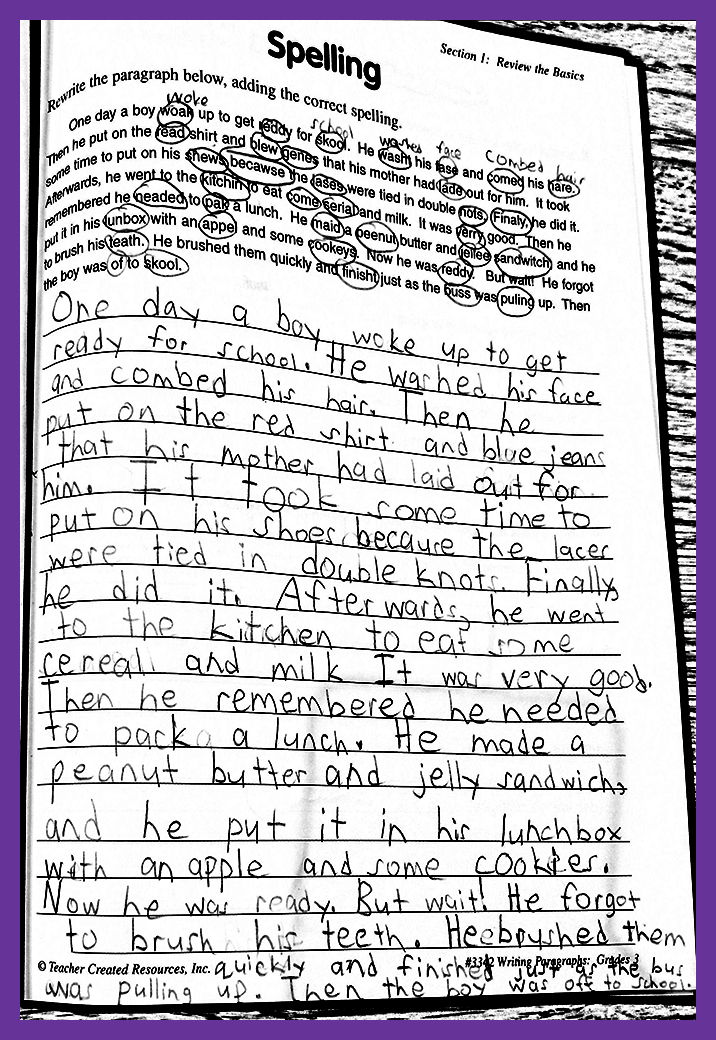 Spelling
Section 1: Review the Basics
Rewrite the paragraph below, adding the correct spelling.
woke
school washed face combed hair
One day a boy woak up to get reddy for skool. He wash his fase and comed his hare.
Then he put on the read shirt and blew genes that his mother had lade out for him. It took
some time to put on his shews becawse the lases were tied in double nots. Finaly, he did it.
Afterwards, he went to the kitchin to eat come serial and milk. It was verry good. Then he
remembered he neaded to pak a lunch. He maid a peenut butter and jellee sandwitch and he
put it in his lunbox with an appel and some cookeys. Now he was reddy. But wait! He forgot
to brush his teath. He brushed them quickly and finisht just as the buss was puling up. Then
the boy was of to skool.
One day a boy woke up to get
ready for school. He washed his face
and combed his hair. Then he
put on the red shirt and blue jeans
that his mother had laid out for
him. It took some time to
put on his shoes because the laces
were tied in double knots. Finally,
he did it. Afterwards, he went
to the kitchen to eat some
cereal and milk It was very good.
Then he remembered he needed
to pack a lunch. He made a
peanut butter and jelly sandwich,
and he put it in his lunchbox
with an apple and some cookies.
Now he was ready. But wait! He forgot
to brush his teeth. He brushed them
© Teacher Created Resources, Inc. #3342 Writing Paragraphs: Grades 3
quickly and finished just as the bus
was pulling up. Then the boy was off to school.